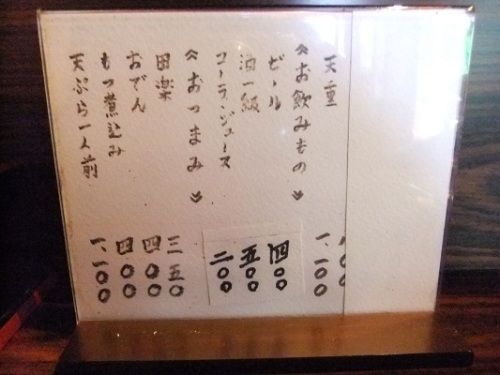 天重 一、一〇〇
≪お飲みもの≫
ビール 四〇〇
酒一級 五〇〇
コーラ、ジュース 二〇〇
≪おつまみ≫
田楽 三五〇
おでん 四〇〇
もつ煮込み 四〇〇
天ぷら一人前 一、一〇〇